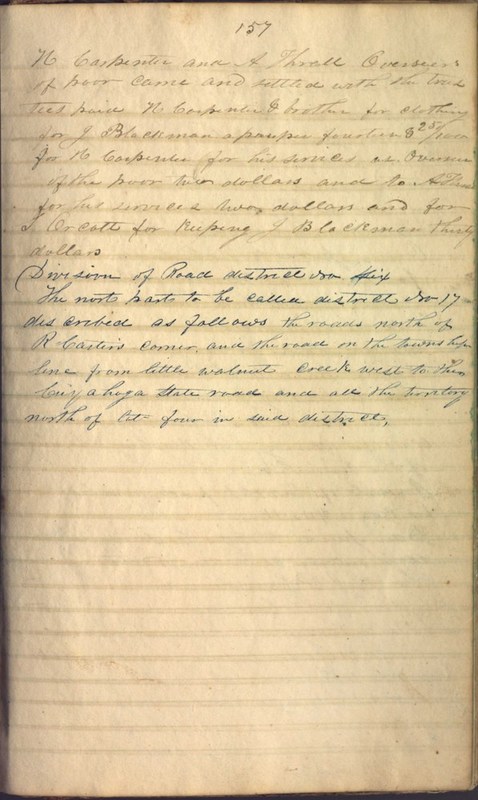 157
N Carpenter and A Thrall Overseers
of poor came and settled with the trus
tees paid N Carpenter & brother for clothing
for J Blackman a pauper fourteen $ 25/100
for N Carpenter for his servises as Overseer
of the poor two dollars and to A Thrall
for his servises two dollars and for
J Orcott for keeping J Blackman thirty
dollars
Division of Road district No Six
The nort part to be called district No 17
discribed as follows the roads north of
R Carters corner and the road on the township
line from little walnut Creek west to the
Cuyahoga State road and all the territory
north of four in said district,